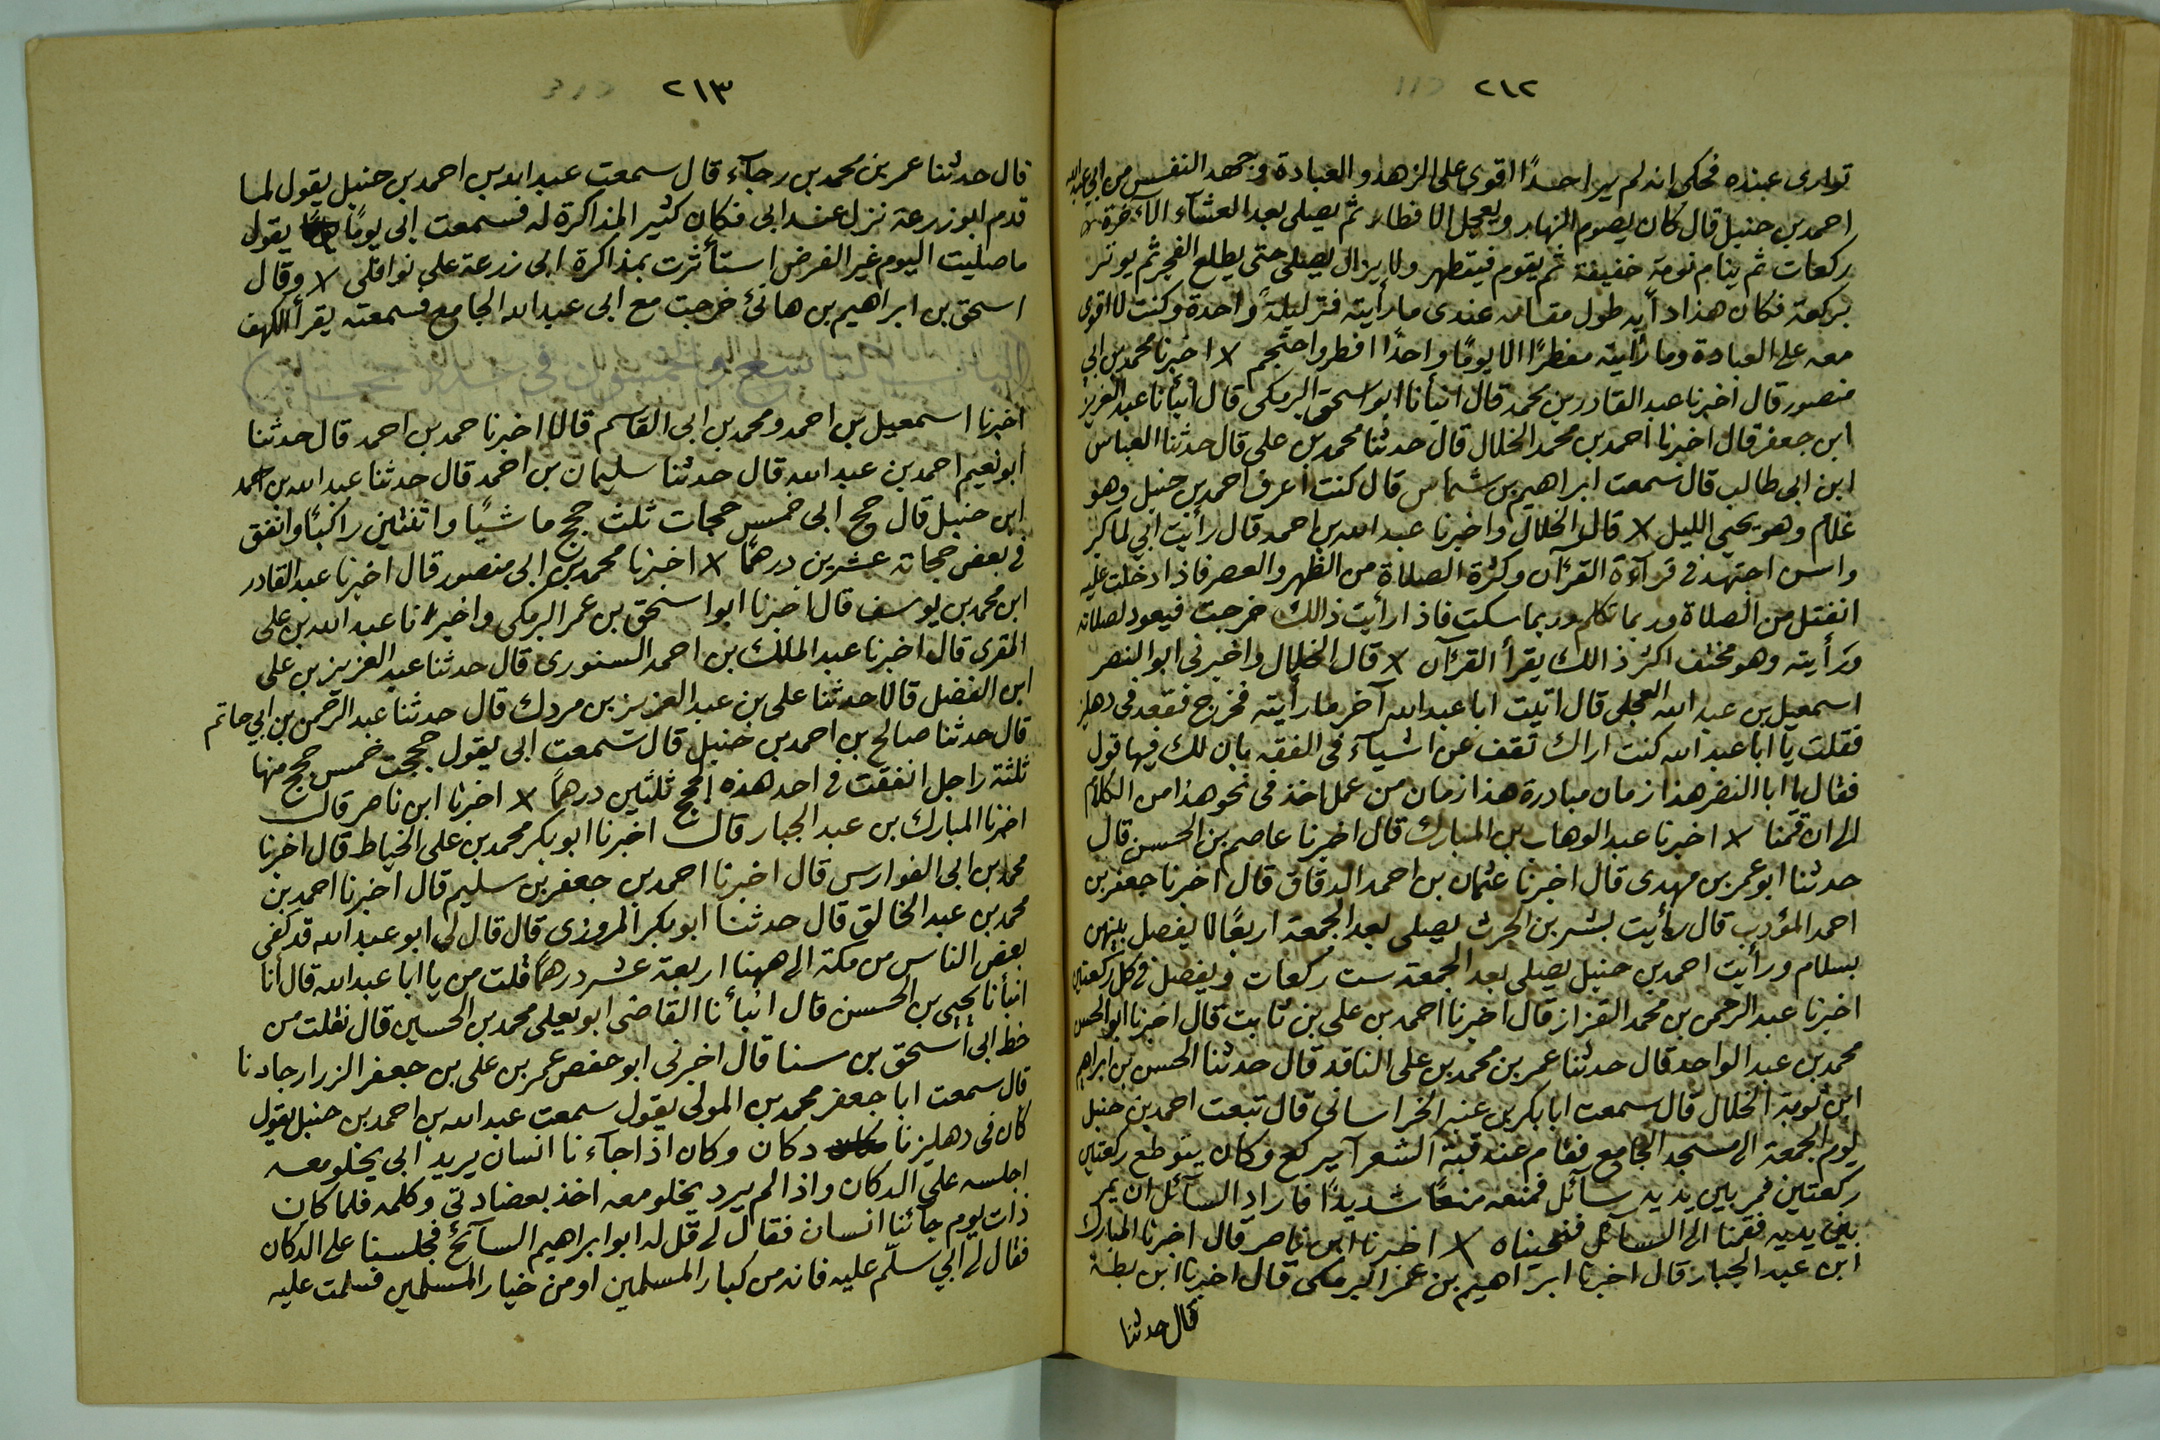 ٢١٢
توارى عنده فحكى انه لم ير احدًا اقوى على الزهد والعبادة وجهد النفس من ابي عبد الله
احمد بن حنبل قال كان يصوم النهار ويعجل الافطار ثم يصلى بعد العشآء الآخرة
ركعات ثم ينام نومة خفيفة ثم يقوم فيتطهر ولا يزال يصلى حتى يطلع الفجر ثم يوتر
بركعة فكان هذا دأبه طول مقامه عندى ما رأيته فتر ليلةً واحدة وكنت لا اقوى
معه على العبادة وما رأيته مفطرًا الا يومًا واحدًا افطر واحتجم ٪ اخبرنا محمد بن ابي
منصور قال اخبرنا عبد القادر بن محمد قال انبأنا ابو اسحق البرمكى قال انبأنا عبد العزيز
ابن جعفر قال اخبرنا احمد بن محمد الخلال قال حدثنا محمد بن على قال حدثنا العباس
ابن ابى طالب قال سمعت ابراهيم بن شماس قال كنت اعرف احمد بن حنبل وهو
غلام وهو يحيى الليل ٪ قال الخلال واخبرنا عبد الله بن احمد قال رأيت ابي لما كبر
واسن اجتهد فى قرآءة القرآن وكثرة الصلاة من الظهر والعصر فاذا دخلت عليه
انفتل من الصلاة وربما تكلم وربما سكت فاذا رأيت ذالك خرجت فيعود لصلاته
ورأيته وهو مختف اكثر ذالك يقرأ القرآن ٪ قال الخلال واخبرنى ابو النضر
اسمعيل بن عبد الله العجلى قال اتيت ابا عبد الله آخر ما رأيته فخرج فقعد فى دهليز
فقلت يا ابا عبد الله كنت اراك تقف عن اشيآء فى الفقه بان لك فيها قول
فقال يا ابا النضر هذا زمان مبادرة هذا زمان من عمل اخذ فى نحو هذا من الكلام
الى ان قمنا ٪ اخبرنا عبد الوهاب بن المبارك قال اخبرنا عاصم بن الحسن قال
حدثنا ابو عمر بن مهدى قال اخبرنا عثمان بن احمد الدقاق قال اخبرنا جعفر بن
احمد المؤدب قال رأيت بشر بن الحرث يصلى بعد الجمعة اربعًا لا يفصل بينهن
بسلام ورأيت احمد بن حنبل يصلى بعد الجمعة ست ركعات ويفصل فى كل ركعتين
اخبرنا عبد الرحمن بن محمد القزاز قال اخبرنا احمد بن على بن ثابت قال اخبرنا ابو الحسن
محمد بن عبد الواحد قال حدثنا عمر بن محمد بن على الناقد قال حدثنا الحسن بن ابراهيم
ابن توبة الخلال قال سمعت ابا بكر بن عنبر الخراسانى قال تبعت احمد بن حنبل
يوم الجمعة الى مسجد الجامع فقام عند قبة الشعرآ يركع وكان يتوطع ركعتين
ركعتين فمر بين يديه سآئل فمنعه منعًا شديدًا فاراد السآئل ان يمر
بين يديه فقمنا الى السآئل فنحيناه ٪ اخبرنا ابن ناصر قال اخبرنا المبارك
ابن عبد الجبار قال اخبرنا ابراهيم بن عمر البرمكى قال اخبرنا ابن بطة
قال حدثنا
٢١٣
قال حدثنا عمر بن محمد بن رجآء قال سمعت عبد الله بن احمد بن حنبل يقول لما
قدم ابو زرعة نزل عند ابى فكان كثير المذاكرة له فسمعت ابى يومًا يقول
ما صليت اليوم غير الفرض استأثرت بمذاكرة ابى زرعة على نوافلى ٪ وقال
اسحق بن ابراهيم بن هانئ خرجت مع ابى عبد الله الجامع فسمعته يقرأ الكهف
الباب التاسع والخمسون فى
اخبرنا اسمعيل بن احمد ومحمد بن ابى القاسم قالا اخبرنا حمد بن احمد قال حدثنا
ابو نعيم احمد بن عبد الله قال حدثنا سليمان بن احمد قال حدثنا عبد الله بن احمد
ابن حنبل قال حج ابى خمس حجات ثلث حجج ماشيًا واثنتين راكبًا وانفق
فى بعض حجاته عشرين درهمًا ٪ اخبرنا محمد بن ابى منصور قال اخبرنا عبد القادر
ابن محمد بن يوسف قال اخبرنا ابو اسحق بن عمر البرمكى واخبرنا عبد الله بن على
المقرى قال اخبرنا عبد الملك بن احمد السنورى قال حدثنا عبد العزيز بن على
ابن الفضل قالا حدثنا على بن عبد العزيز بن مردك قال حدثنا عبد الرحمن بن ابي حاتم
قال حدثنا صالح بن احمد بن حنبل قال سمعت ابى يقول حججت خمس حجج منها
ثلثة راجل انفقت فى احد هذه الحجج ثلثين درهمًا ٪ اخبرنا ابن ناصر قال
اخبرنا المبارك بن عبد الجبار قال اخبرنا ابو بكر محمد بن على الخياط قال اخبرنا
محمد بن ابى الفوارس قال اخبرنا احمد بن جعفر بن سليم قال اخبرنا احمد بن
محمد بن عبد الخالق قال حدثنا ابو بكر المروزى قال قال لي ابو عبد الله قد كفى
بعض الناس من مكة الى ههنا اربعة عشر درهمًا قلت من يا ابا عبد الله قال انا
انبأنا يحيى بن الحسن قال انبأنا القاضى ابو يعلى محمد بن الحسين قال نقلت من
خط ابى اسحق بن سنا قال اخبرنى ابو حفص عمر بن على بن جعفر الزرار جادنا
قال سمعت ابا جعفر محمد بن المولى يقول سمعت عبد الله بن احمد بن حنبل يقول
كان فى دهليزنا دكان وكان اذا جاءنا انسان يريد ابى يخلو معه
اجلسه على الدكان واذا لم يرد يخلو معه اخذ بعضادتى وكلمه فلما كان
ذات يوم جآئنا انسان فقال لى قل له ابو ابراهيم السآئح فجلسنا على الدكان
فقال لى ابي سلّم عليه فانه من كبار المسلمين او من خيار المسلمين فسلمت عليه